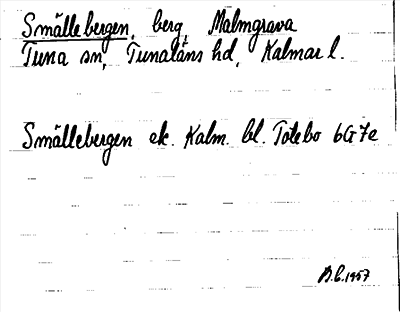 Smällebergen, berg, Malmgrava
Tuna sn, Tunaläns hd, Kalmar l.
Smällebergen ek. Kalm. bl. Totebo 6G7e
B.C. 1957